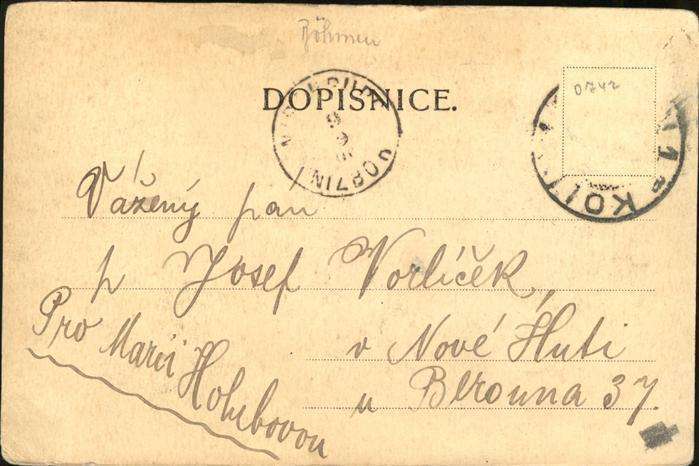 Böhmen
DOPISNICE.
0742
Vážený pan
p Josef Vorlíček
v Nové Huti
u Berouna 37.
Pro Marii
Holubovou